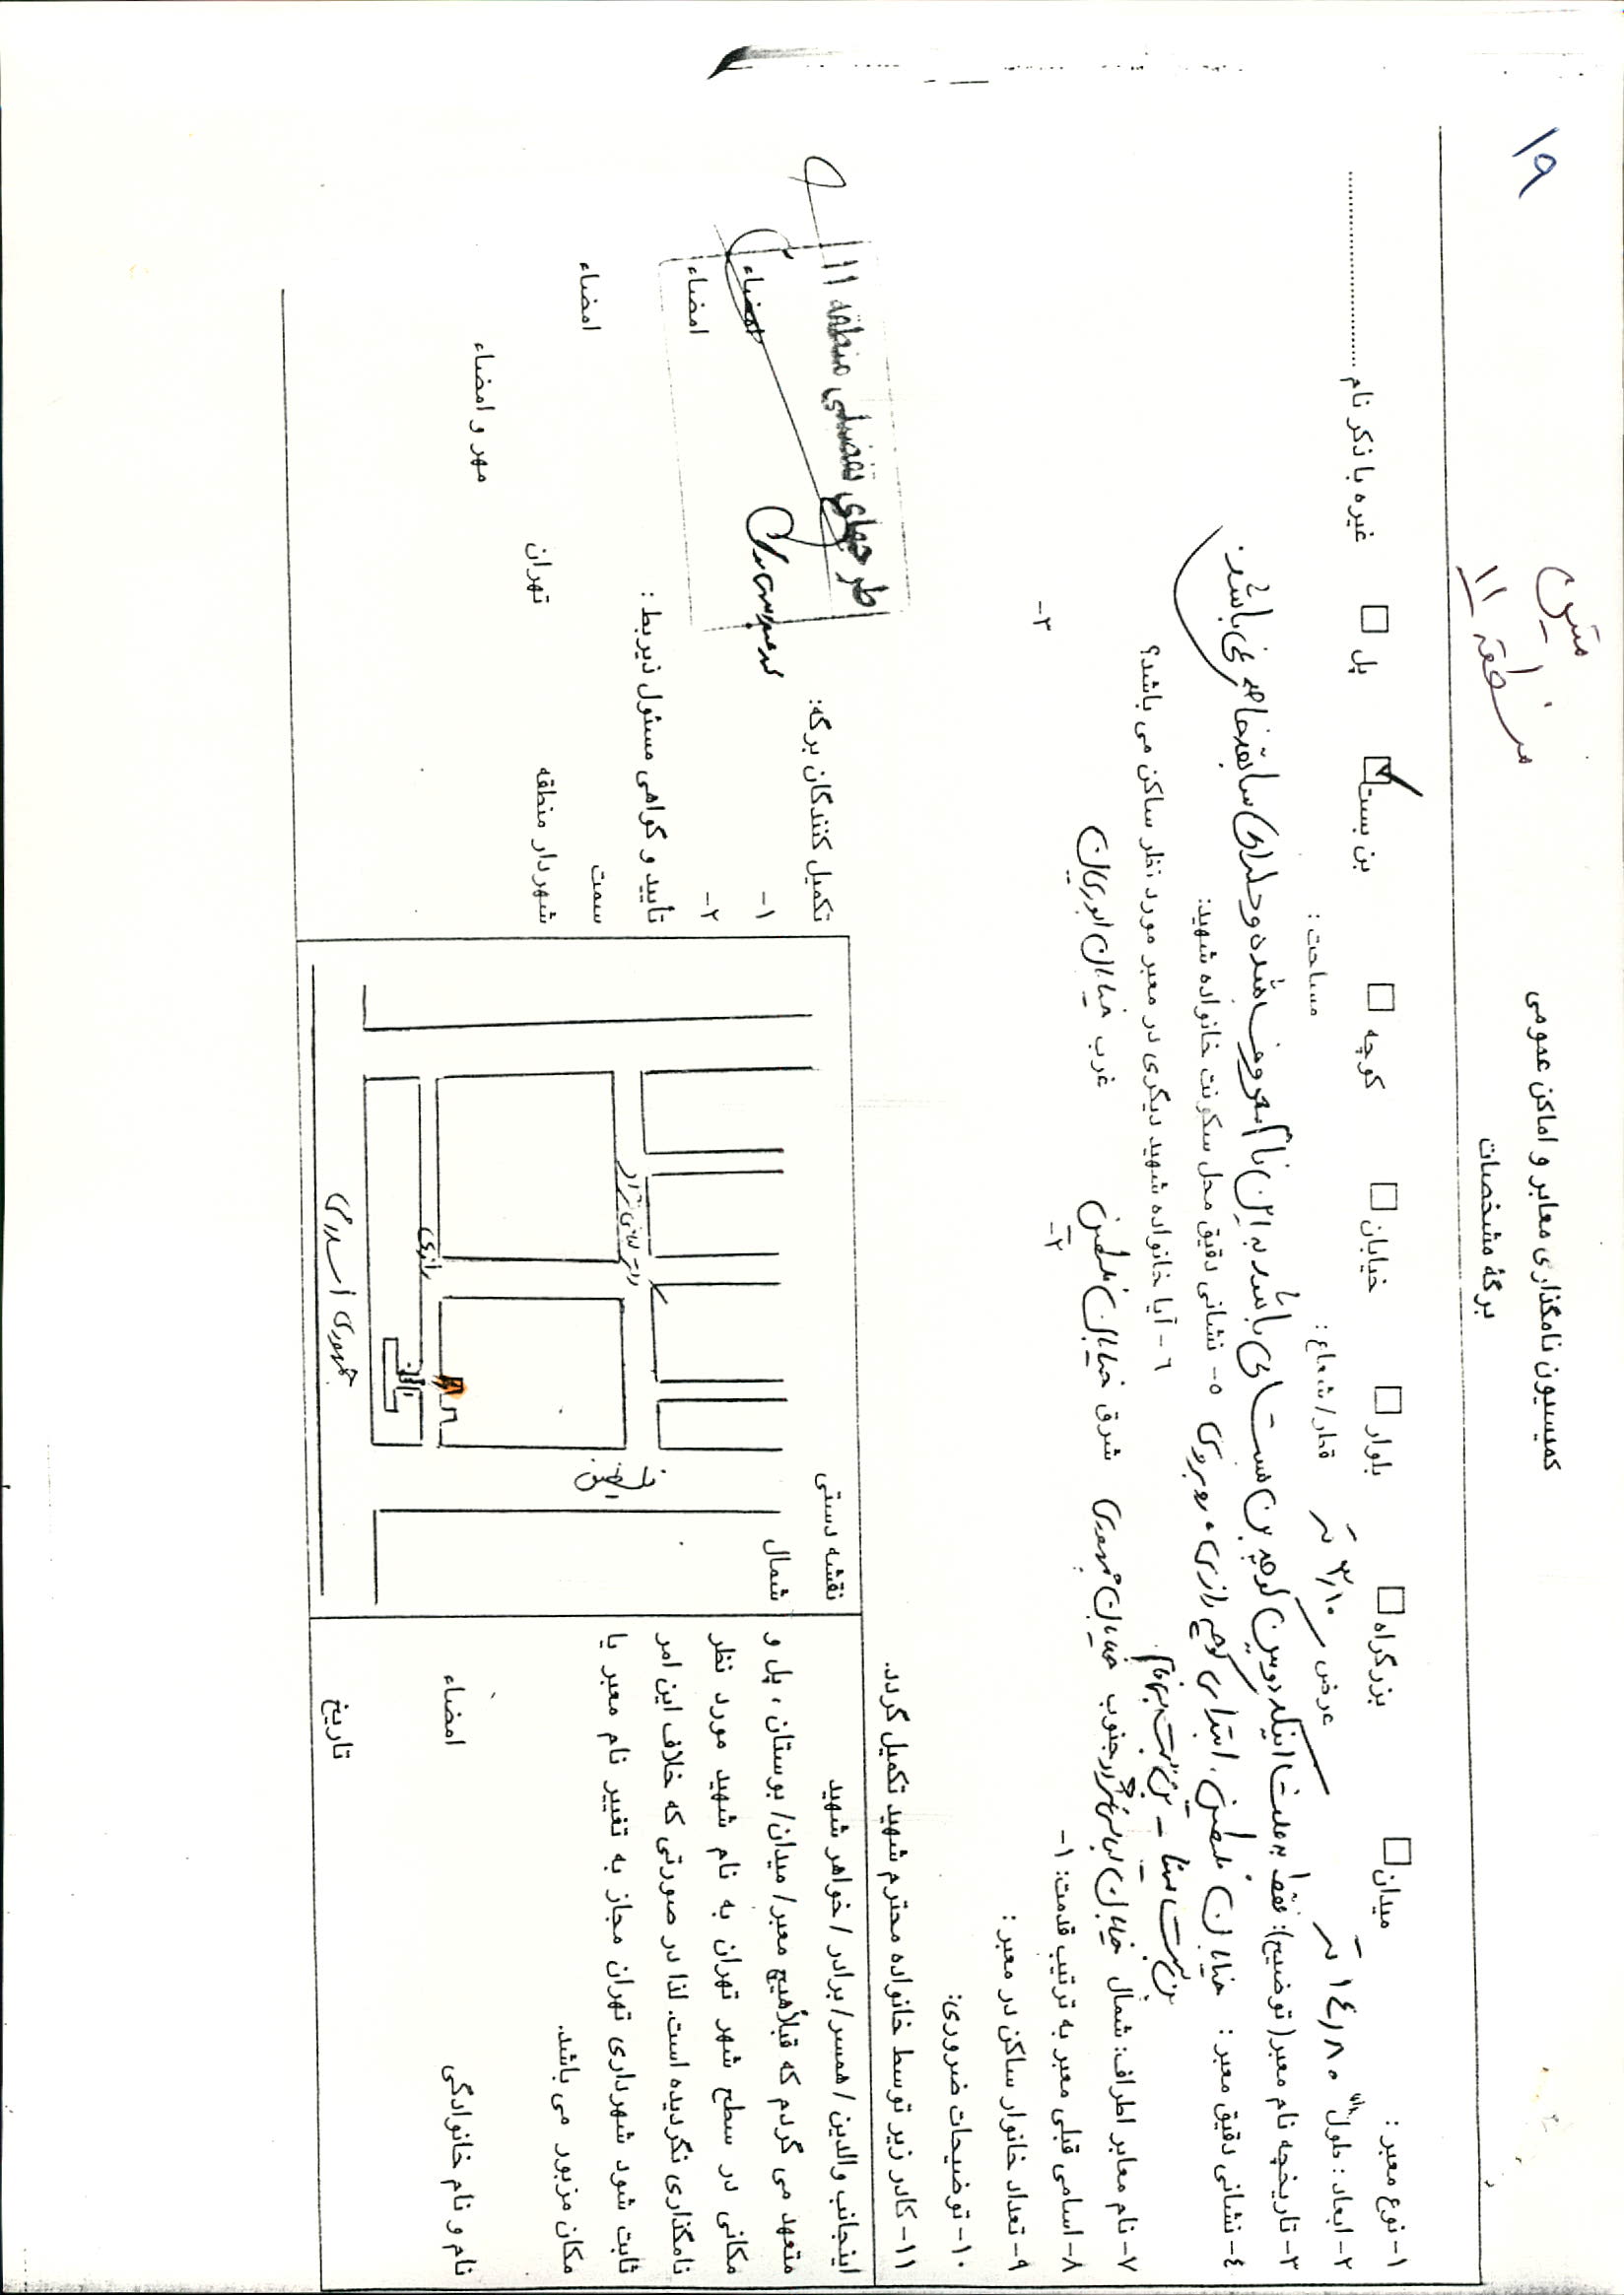 ۱۹
متین
منطقه ۱۱
کمیسیون نامگذاری معابر و اماکن عمومی
برگه مشخصات
۱- نوع معبر : میدان بزرگراه بلوار خیابان کوچه بن بست پل غیره با ذکر نام
۲- ابعاد: طول ۱٤٫۸۰ عرض ۳٫۱۰ قطر/شعاع : مساحت :
۳- تاریخچه نام معبر (توضیح): فقط به علت اینکه دومین کوچه بن بست می باشد به این نام معروف شده و دارای سابقه خاصی نمی باشد.
٤- نشانی دقیق معبر : خیابان فلسطین، ابتدای کوچه رازی، روبروی ۵- نشانی دقیق محل سکونت خانواده شهید:
بن بست سینا - بن بست
٦- آیا خانواده شهید دیگری در معبر مورد نظر ساکن می باشد؟
۷- نام معابر اطراف: شمال خیابان جنوب خیابان جمهوری شرق خیابان فلسطین غرب خیابان ابوریحان
۸- اسامی قبلی معبر به ترتیب قدمت: ۱- ۲- ۳-
۹- تعداد خانوار ساکن در معبر :
۱۰- توضیحات ضروری:
۱۱- کادر زیر توسط خانواده محترم شهید تکمیل گردد.
اینجانب والدین / همسر / برادر / خواهر شهید
متعهد می گردم که قبلاً هیچ معبر / میدان / بوستان ، پل و
مکانی در سطح شهر تهران به نام شهید مورد نظر
نامگذاری نگردیده است. لذا در صورتی که خلاف این امر
ثابت شود شهرداری تهران مجاز به تغییر نام معبر یا
مکان مزبور می باشد.
نام و نام خانوادگی امضاء
تاریخ
نقشه دستی
شمال
فلسطین
رازی
جمهوری اسلامی
تکمیل کنندگان برگه:
۱- امضاء
۲- امضاء
طرحهای تفضیلی منطقه ۱۱
تأیید و گواهی مسئول ذیربط :
سمت امضاء
شهردار منطقه تهران
مهر و امضاء